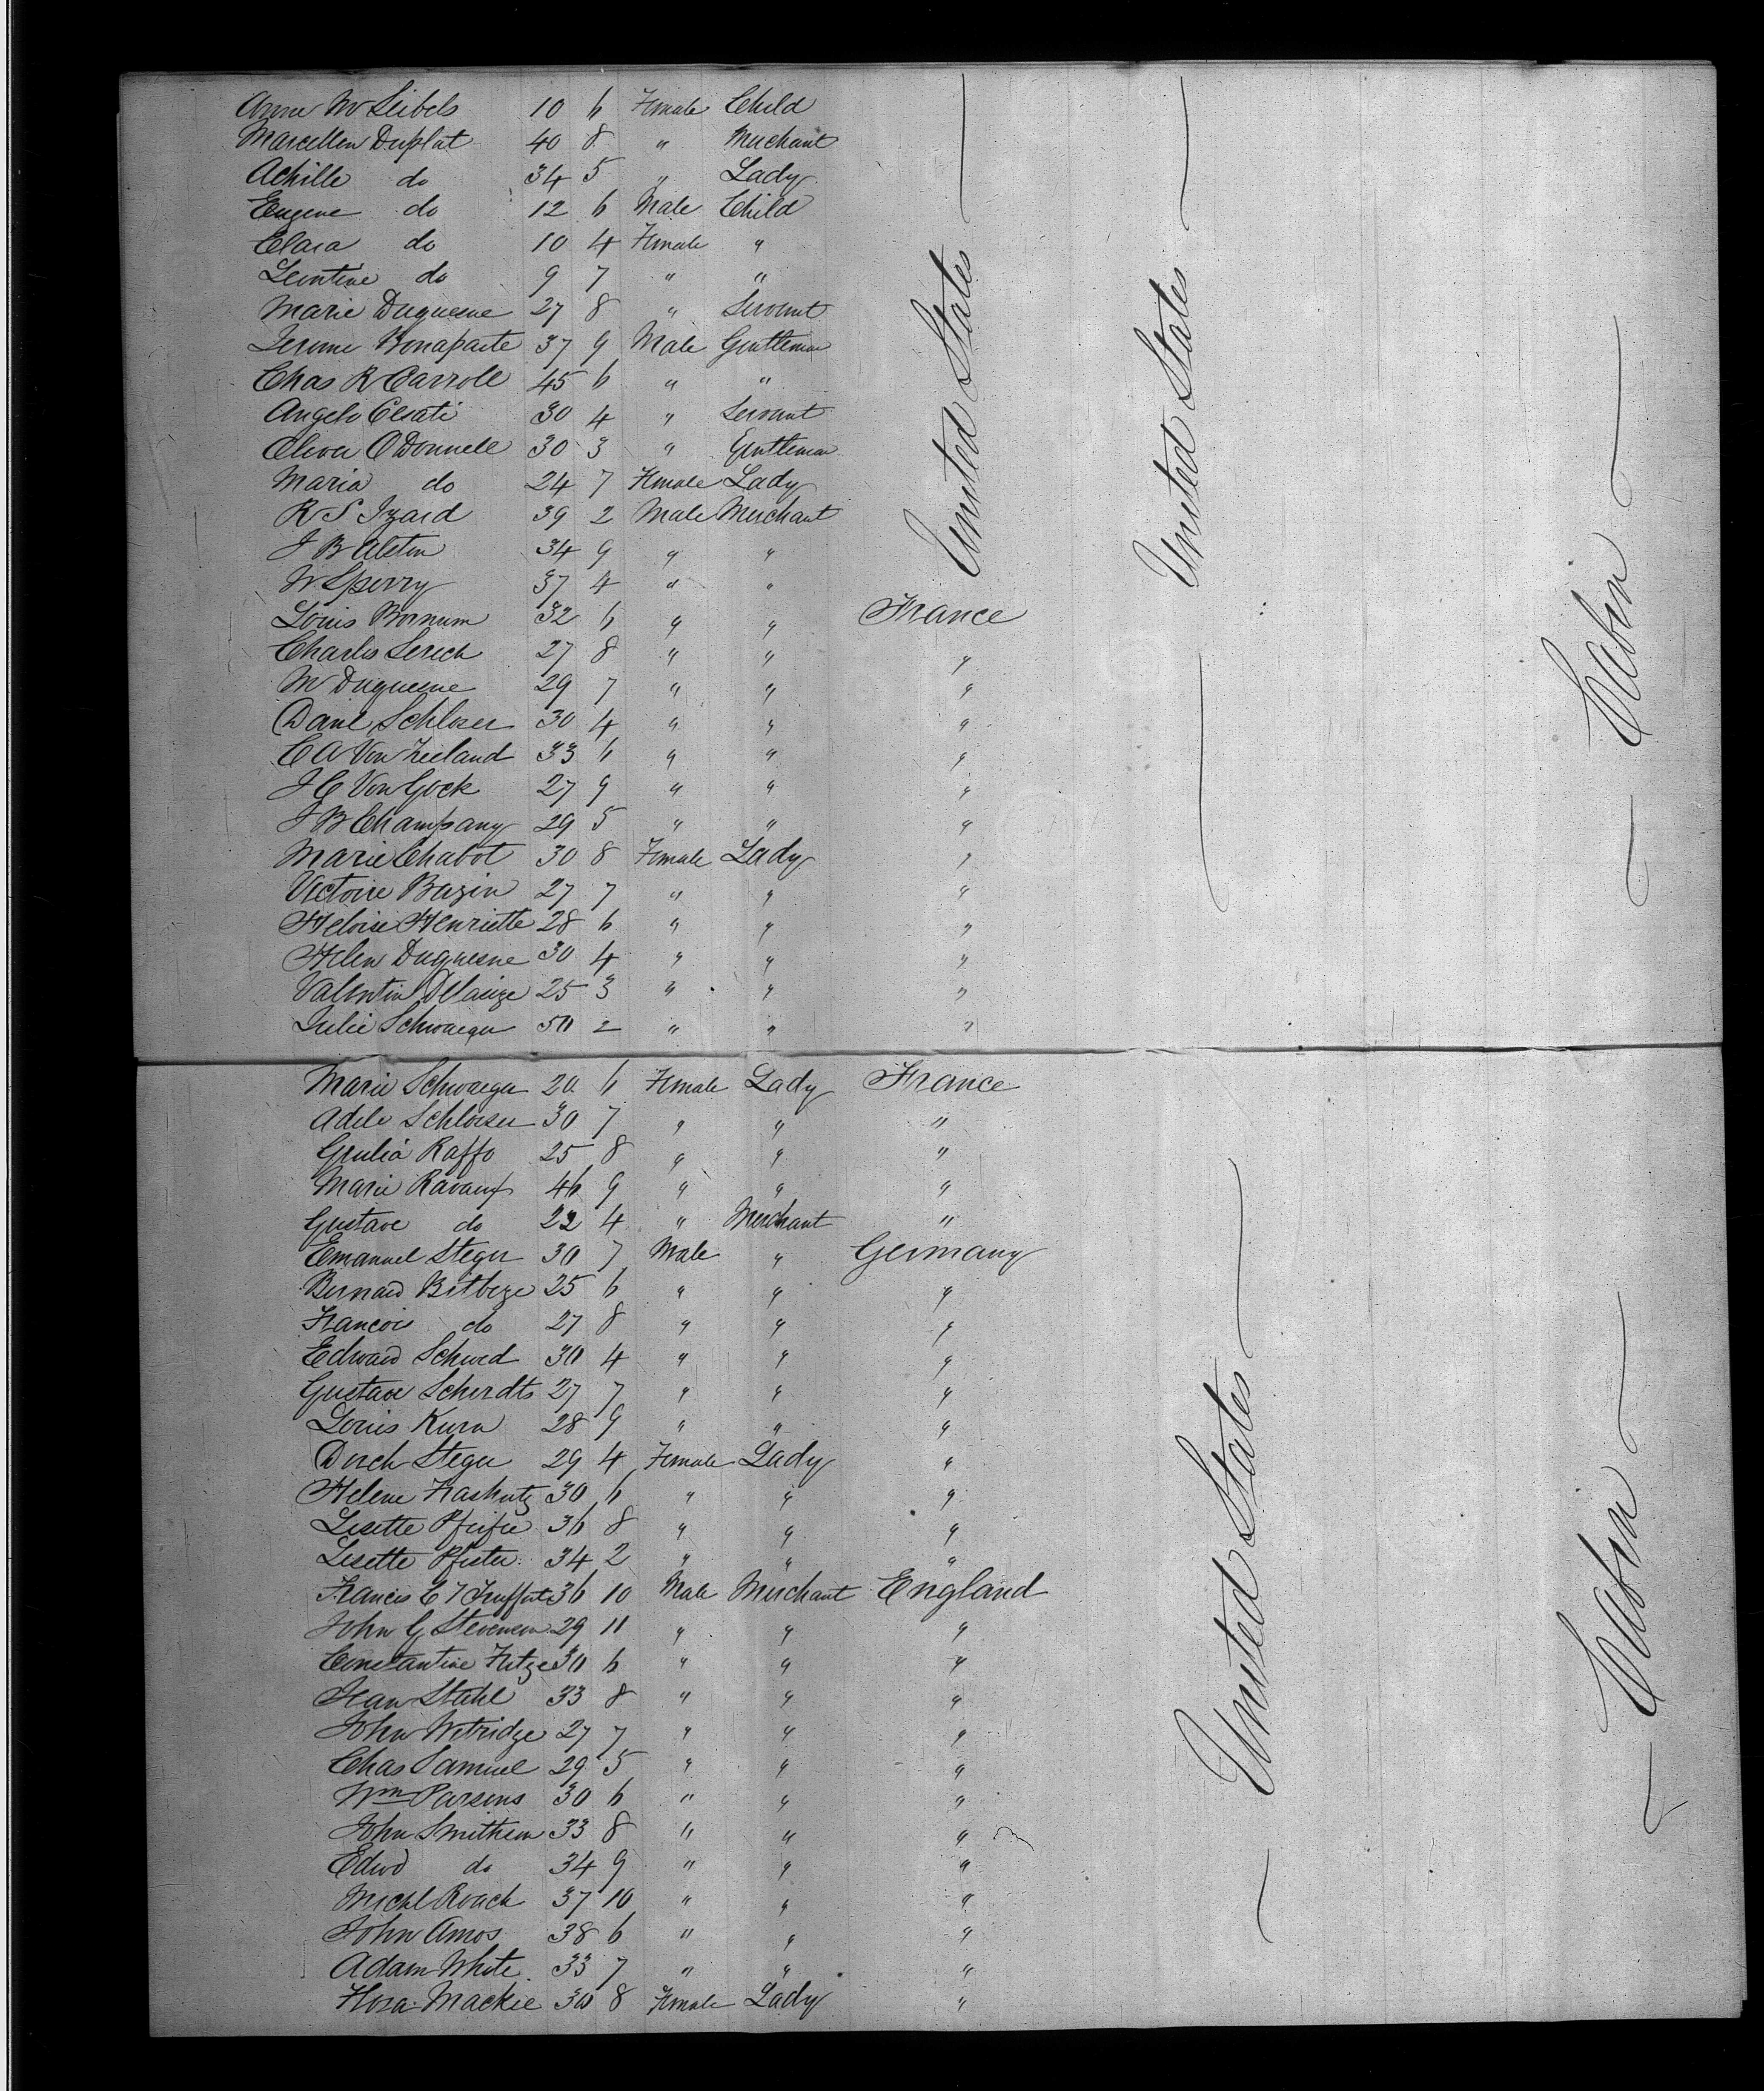 Anna M Seibels 10 6 Female Child
Marcellen Duplat 40 8 " Merchant
Achille do 34 5 " Lady
Eugene do 12 6 Male Child
Clara do 10 4 Female "
Leontine do 9 7 " "
Marie Duquesne 27 8 " Servant
Jerome Bonaparte 37 9 Male Gentleman
Chas R Carroll 45 6 " "
Angelo 30 4 " Servant
Oliver O'Donnell 30 3 " Gentleman
Maria do 24 7 Female Lady
R S Izard 39 2 Male Merchant
J B Alston 34 9 " "
W Sperry 37 4 " "
United States
United States
Louis Bornum 32 6 " " France
Charles Serich 27 8 " " "
M Duquesne 29 7 " " "
Danl Schloser 30 4 " " "
C A Von Zeeland 33 6 " " "
J C Von Gock 27 9 " " "
J B Champany 29 5 " " "
Marie Chabot 30 8 Female Lady "
Victoire Bazin 27 7 " " "
Heloise Henriette 28 6 " " "
Helen Duquesne 30 4 " " "
Valentin 25 3 " " "
Julie Schwaeger 50 2 " " "
Cabin
Marie Schwaeger 20 6 Female Lady France
Adele Schloser 30 7 " " "
Giulia Raffo 25 8 " " "
Marie 46 9 " " "
Gustave do 22 4 " Merchant "
Emanuel Steger 30 7 Male " Germany
Bernard Bitbeze 25 6 " " "
Francois do 27 8 " " "
Edward Schwed 30 4 " " "
Gustave Scherdts 27 7 " " "
Louis Kurn 28 9 " " "
Steger 29 4 Female Lady "
Helene 30 6 " " "
Lisette Pfeifer 36 8 " " "
Lisette Pfister 34 2 " " "
Francis E 36 10 Male Merchant England
John G Stevenson 29 11 " " "
Constantine 30 6 " " "
Jean Stahl 33 8 " " "
John Wetridge 27 7 " " "
Chas Samuel 29 5 " " "
Wm Parsons 30 6 " " "
John Smithson 33 8 " " "
Edwd do 34 9 " " "
Michl Roach 37 10 " " "
John Amos 38 6 " " "
Adam White 33 7 " " "
Flora Mackie 30 8 Female Lady "
United States
Cabin